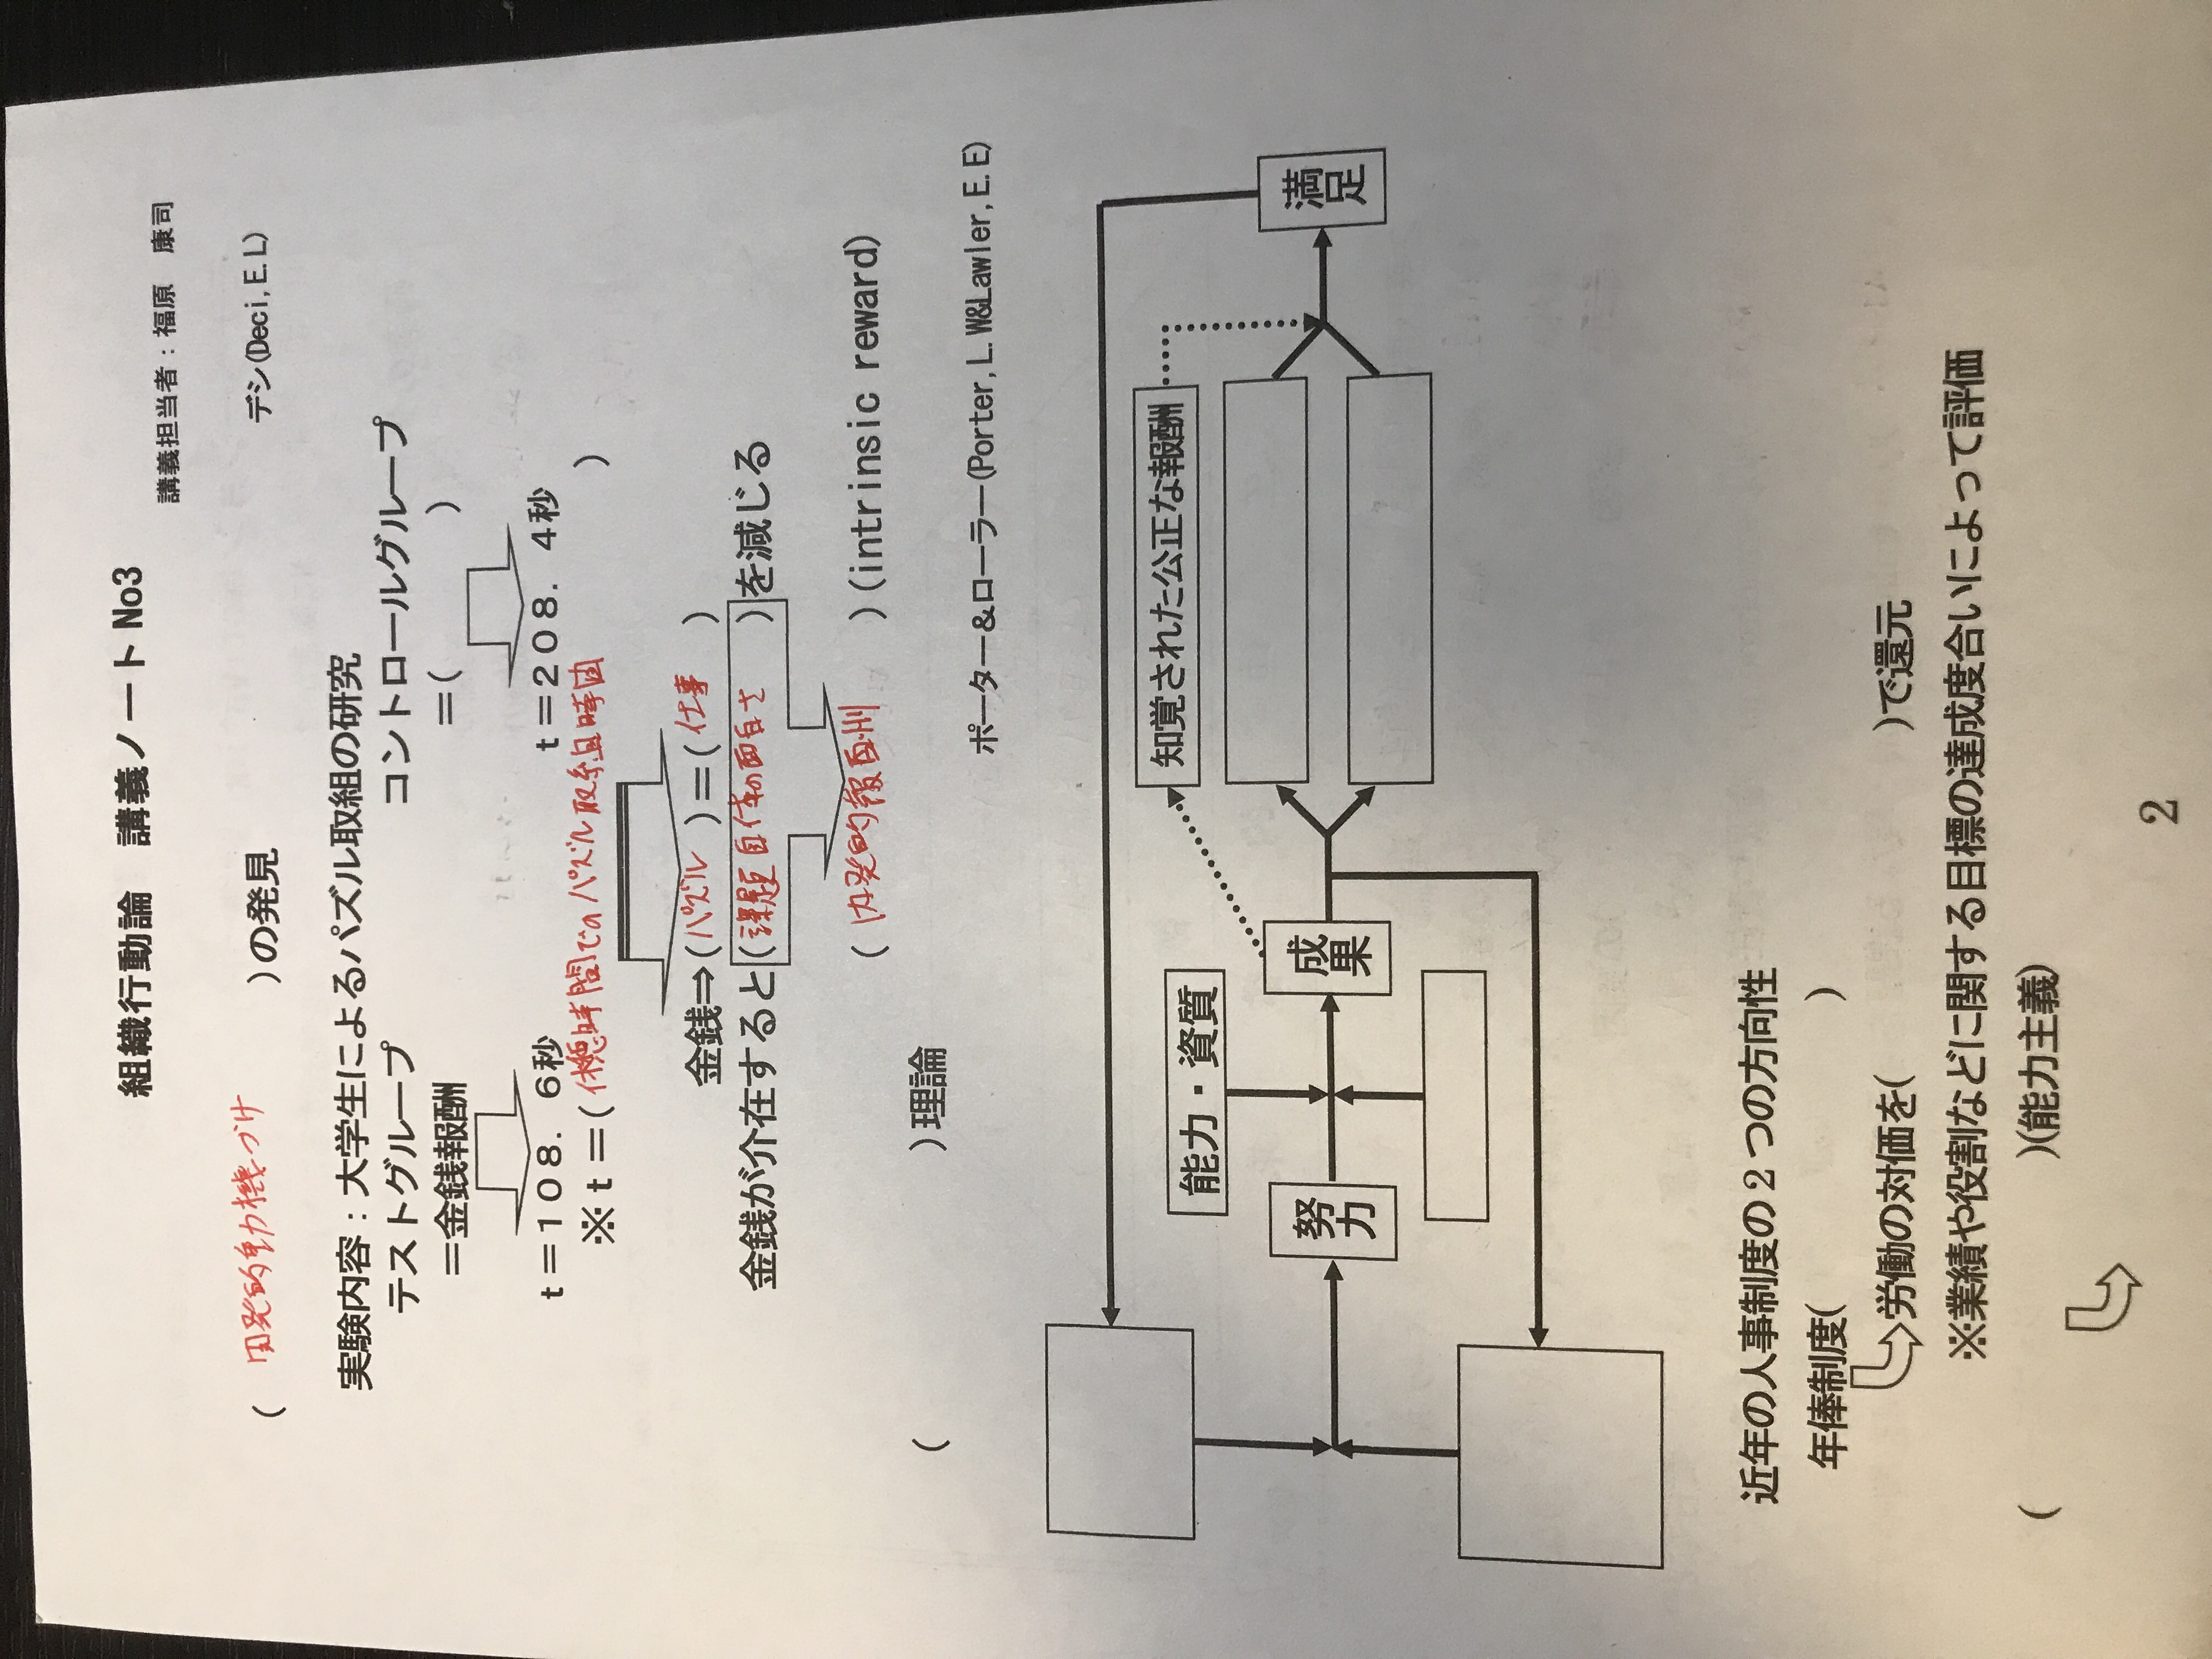 組織行動論　講義ノートNo3
講義担当者：福原　康司
(内発的動機づけ)の発見　デシ(Deci,E.L)
実験内容：大学生によるパズル取組の研究
テストグループ　コントロールグループ
＝金銭報酬　＝(　)
t＝108．6秒　t＝208．4秒
※t＝(休憩時間でのパズル取組時間)
金銭⇒(パズル)＝(仕事)
金銭が介在すると(課題自体の面白さ)を減じる
(内発的報酬)(intrinsic reward)
(　)理論
ポーター＆ローラー(Porter,L.W&Lawler,E.E)
知覚された公正な報酬
能力・資質
努力
成果
満足
近年の人事制度の2つの方向性
年俸制度(　)
労働の対価を(　)で還元
※業績や役割などに関する目標の達成度合いによって評価
(　)(能力主義)
2